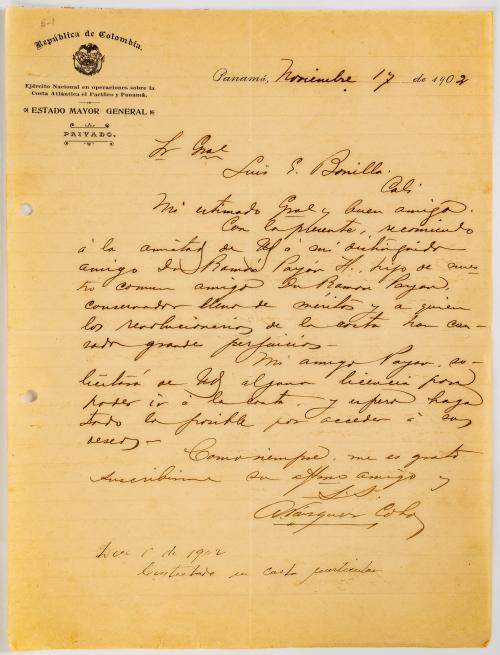 5-1
República de Colombia.
Ejército Nacional en operaciones sobre la
Costa Atlántica el Pacífico y Panamá.
ESTADO MAYOR GENERAL
PRIVADO.
Panamá, Noviembre 17 de 1902
Sr Gral
Luis E. Bonilla.
Cali
Mi estimado Gral y buen amigo.
Con la presente, recomiendo
á la amistad de Ud á mi distinguido
amigo Dn Ramón Payán H., hijo de nues
tro comun amigo Dn Ramón Payan,
conservador lleno de méritos y a quien
los revolucionarios de la costa han cau
sado grandes perjuicios-
Mi amigo Payan, so-
licitará de Ud alguna licencia para
poder ir á la costa, y espero haga
todo lo posible por acceder á sus
deseos-
Como siempre, me es grato
suscribirme su affmo amigo y
S. S.
Vásquez Cobo
Dice 1º de 1902
Contestado en carta particular